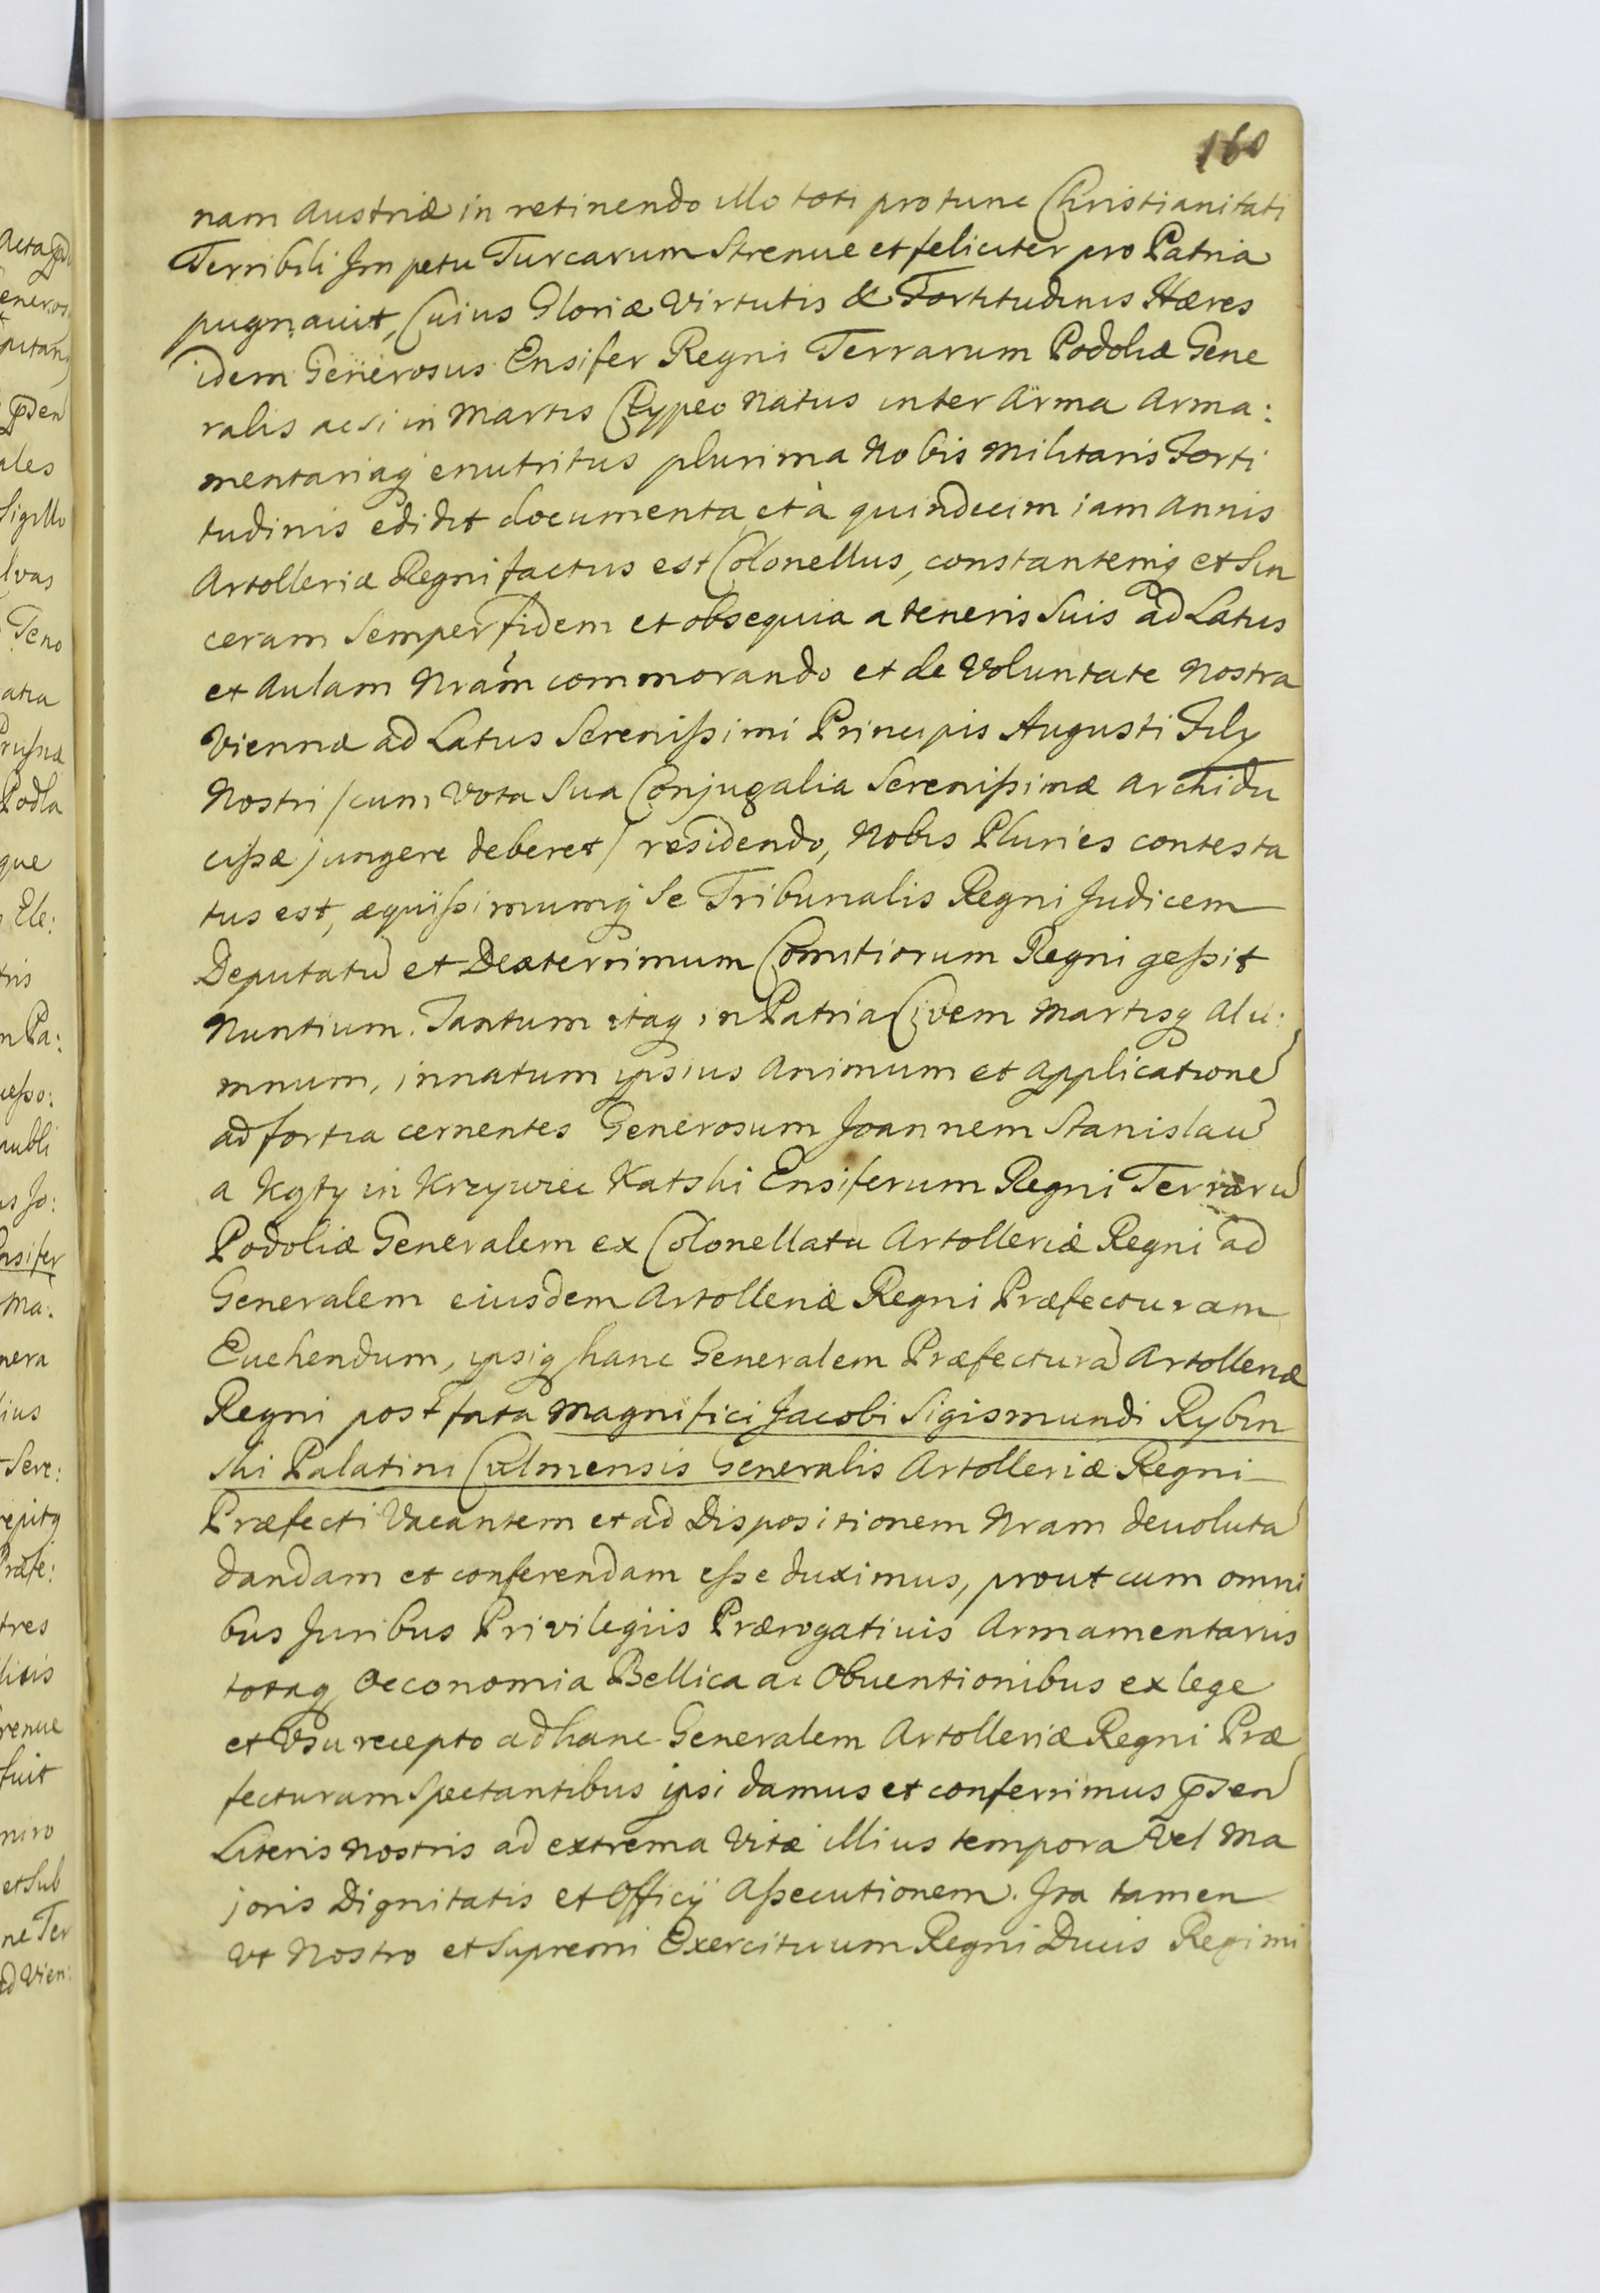 160
nam Austriæ in retinendo illo toti pro tunc Christianitati
Terribili Impetu Turcarum Strenue et feliciter pro Patria
pugnavit, Cuius Gloriæ Virtutis & Fortitudinis Hæres
idem Generosus Ensifer Regni Terrarum Podoliæ Gene
ralis ac si in Martis Clypeo Natus inter Arma Arma:
mentariaq enutritus plurima Nobis Militaris Forti
tudinis edidit documenta, et à quindecim iam Annis
Artolleriæ Regni factus est Colonellus, constantemq et Sin
ceram Semper fidem et obsequia a teneris Suis ad Latus
et Aulam Nram commorando et de Voluntate Nostra
Viennæ ad Latus Serenissimi Principis Augusti Fily
Nostri /cum Vota Sua Conjugalia Serenissimæ Archidu
cissæ jungere deberet/ residendo, Nobis Pluries contesta
tus est, æquissimumq Se Tribunalis Regni Judicem
Deputatu et Dexterrimum Comitiorum Regni gessit
Nuntium. Tantum itaq in Patria Civem Martisq Alu:
mnum, innatum ipsius Animum et applicatione
ad fortia cernentes Generosum Joannem Stanislau
a Kąty in Krzywcze Katski Ensiferum Regni Terraru
Podoliæ Generalem ex Colonellatu Artolleriæ Regni ad
Generalem eiusdem Artolleriæ Regni Præfecturam
Euehendum, ipsiq hanc Generalem Præfectura Artolleriæ
Regni post fata Magnifici Jacobi Sigismundi Rybin
ski Palatini Culmensis Generalis Artolleriæ Regni
Præfecti Vacantem et ad Dispositionem Nram deuoluta
dandam et conferendam esse duximus, prout cum omni
bus Juribus Privilegiis Prærogatiuis Armamentariis
totaq Oeconomia Bellica ac Obuentionibus ex lege
et Vsu recepto ad hanc Generalem Artolleriæ Regni Præ
fecturam Spectantibus ipsi damus et conferrimus psen
Literis Nostris ad extrema Vitæ illius tempora Vel Ma
joris Dignitatis et Officij Assecutionem. Ita tamen
Vt Nostro et Supremi Exercituum Regni Ducis Regimi